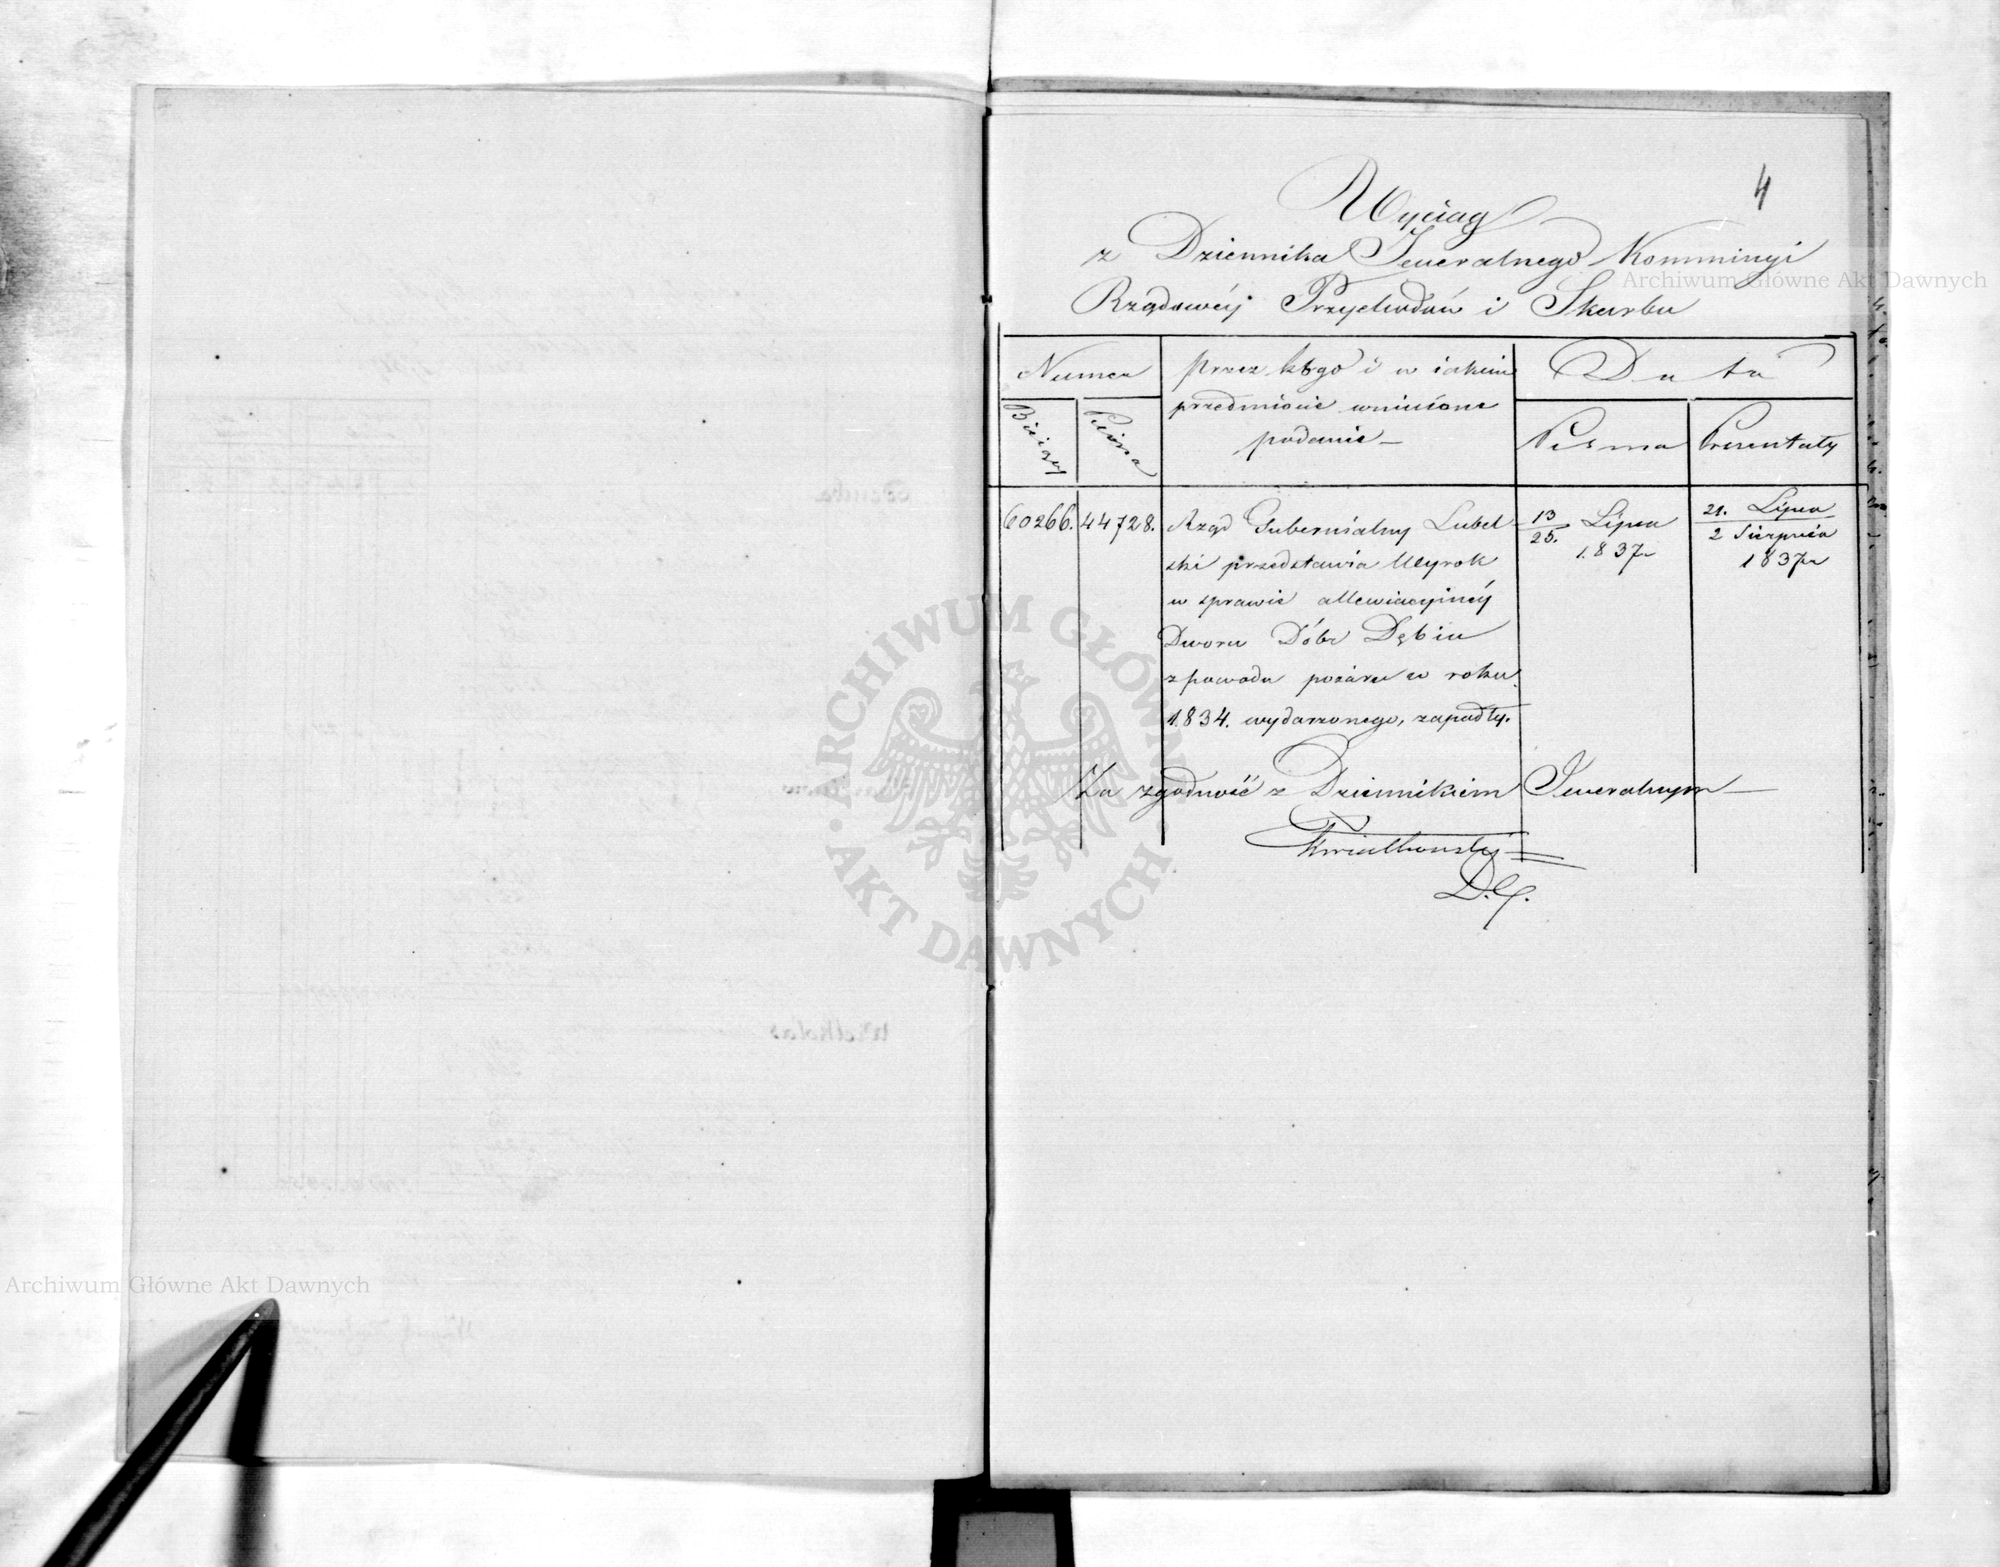 4
Wyciąg
z Dziennika Jeneralnego Kommissyi
Rządowéy Przychodów i Skarbu
Numer
przez kogo i w iakim
przedmiocie wniesione
podanie
Data
Bieżący
Pisma
Pisma
Prezentaty
60266.
44728.
Rząd Gubernialny Lubel
ski przedstawia Wyrok
w sprawie allewiacyinéy
Dworu Dóbr Dębin
z powodu pożaru w roku
1834. wydarzonego, zapadły.
13/25. Lipca
1837r
21. Lipca
2 Sierpnia
1837r
Za zgodność z Dziennikiem Jeneralnym
Kwiatkowski
D.J.
Archiwum Główne Akt Dawnych
ARCHIWUM GŁÓWNE
AKT DAWNYCH
Archiwum Główne Akt Dawnych